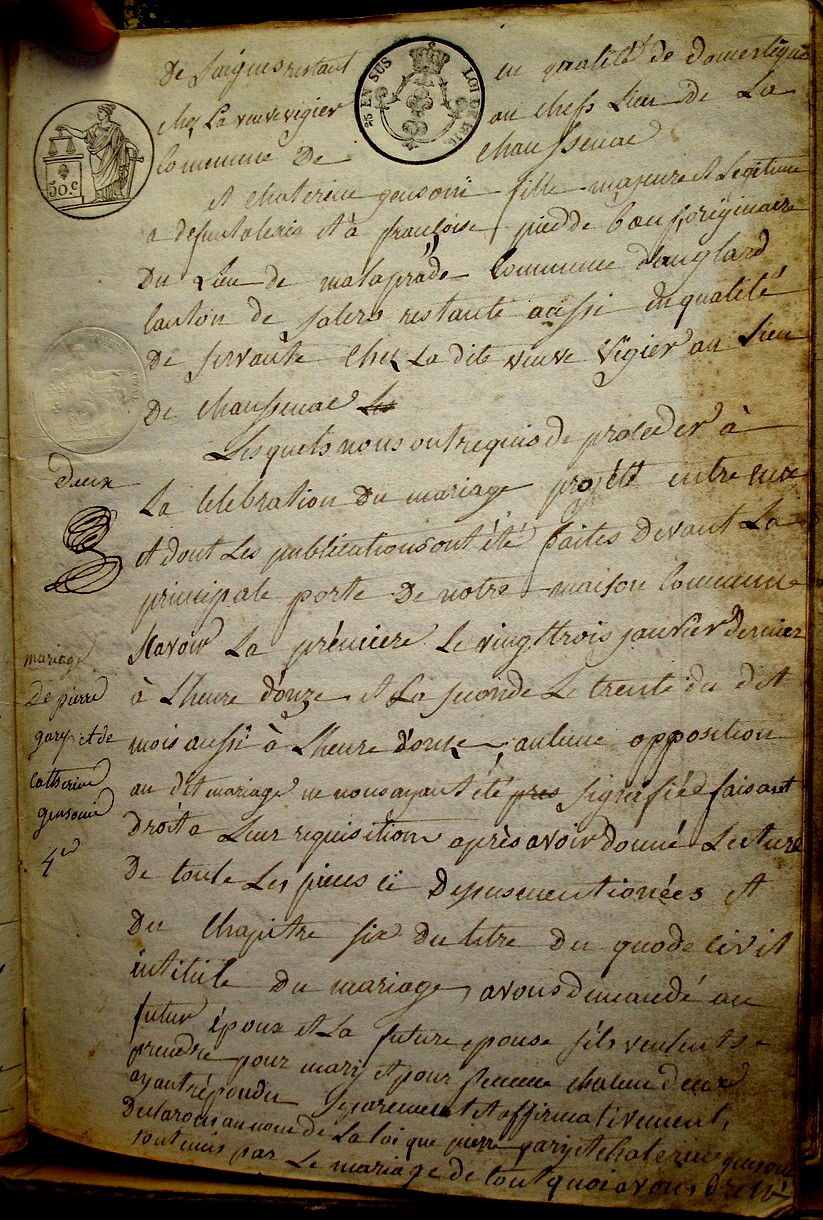 De Saignes restant en qualité de domestique
chez La veuve vigier au cheff Lieu de La
Commune De Chaussenac
25 EN SUS LOI DE 1816
50 c
et chaterine gensonie fille majeure et Legitime
a defunt alexis et à françoise pied de bœuf, originaire
Du Lieu de malaprade Commune d'anglard
Canton de salers restante aussi en qualité
De servante Chez La dite veuve Vigier au Lieu
De Chaussenac Les
Lesquels nous ont requis de proceder à
La Celebration Du mariage projété entre eux
et dont Les publications ont été faites Devant La
principale porte De notre maison Commune
Scavoir La prémiere Le vingt trois janvier dernier
à L'heure d'onze et La seconde Le trente du dit
mois aussi à L'heure d'onze, aucune opposition
au dit mariage ne nous ayant été pres signifiée faisant
Droit a Leur requisition après avoir donné Lecture
De toute Les pieces ci Dessus mentionées et
Du Chapitre six Du titre Du quode Civil
intitulé Du mariage, avons demandé au
futur époux et La future epouse s'ils veulent se
prendre pour mary et pour femme chacun deux
ayant répondu Séparement et affirmativement,
Declarons au nom de La Loi que pierre gary et Chaterine gensonie
sont unis par Le mariage de tout quoi avons dressé
Deux
mariage
De pierre
gary et de
Catherine
gensonie
4e